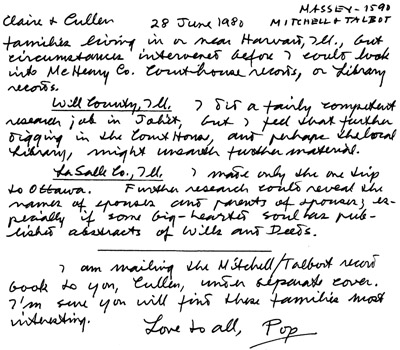 MASSEY-1590
Claire & Cullen 28 June 1980 MITCHELL & TALBOT
families living in or near Harvard, Ill., but
circumstances intervened before I could look
into McHenry Co. Courthouse records, or Library
records.
Will County, Ill. I did a fairly competent
research job in Joliet, but I feel that further
digging in the Court House, and perhaps the local
Library, might unearth further material.
LaSalle Co., Ill. I made only the one trip
to Ottawa. Further research could reveal the
names of spouses and parents of spouses; es-
pecially if some big-hearted soul has pub-
lished abstracts of Wills and Deeds.
I am mailing the Mitchell/Talbott record
book to you, Cullen, under separate cover.
I'm sure you will find these families most
interesting.
Love to all, Pop